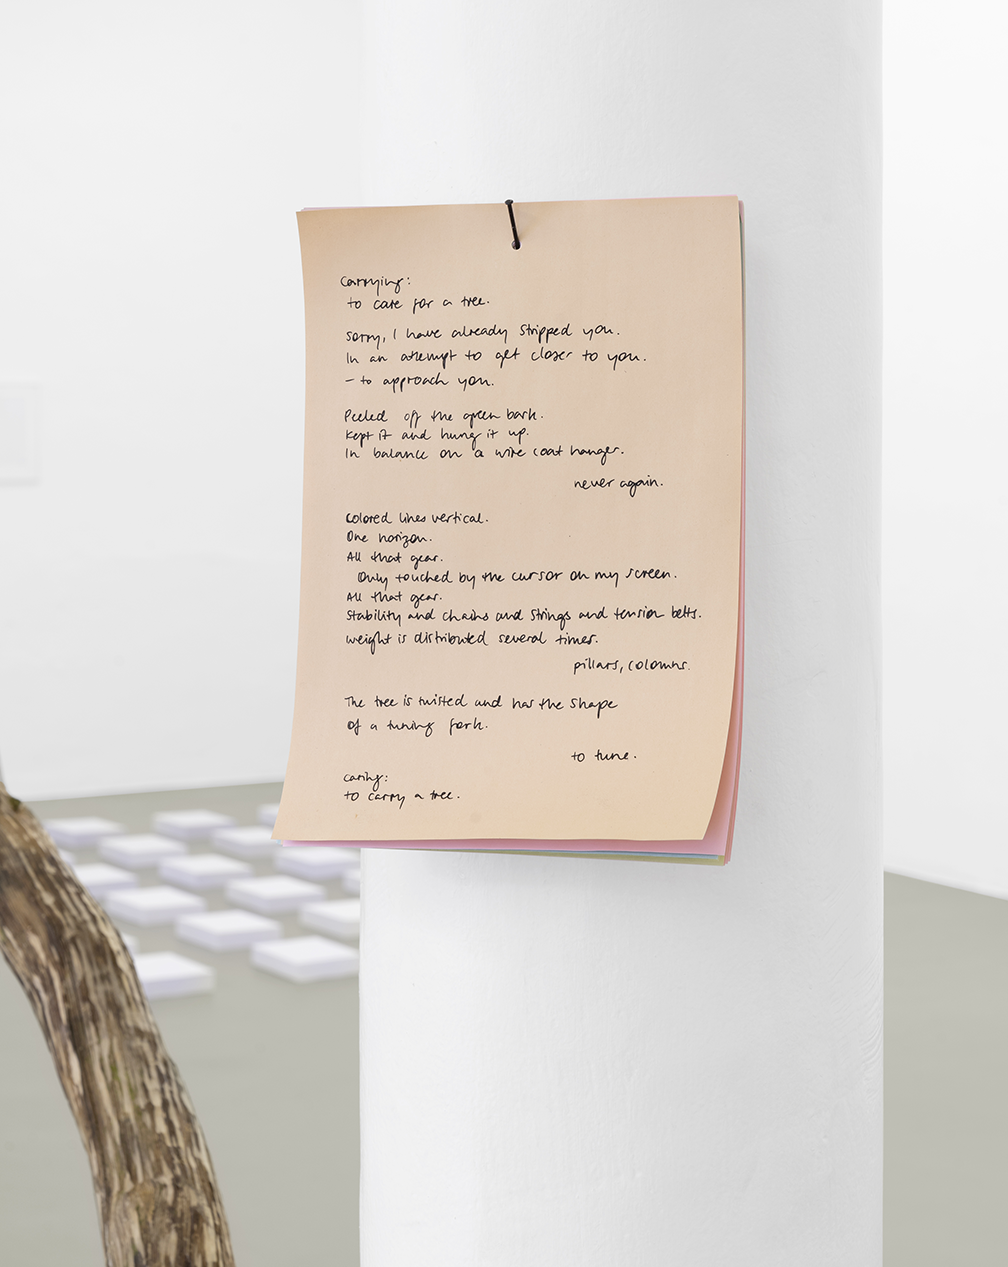 Carrying:
to care for a tree.
Sorry, I have already stripped you.
In an attempt to get closer to you.
– to approach you.
Peeled off the green bark.
Kept it and hung it up.
In balance on a wire coat hanger.
never again.
Colored lines vertical.
One horizon.
All that gear.
Only touched by the cursor on my screen.
All that gear.
Stability and chains and strings and tension belts.
weight is distributed several times.
pillars, coloumns.
The tree is twisted and has the shape
of a tuning fork.
to tune.
caring:
to carry a tree.